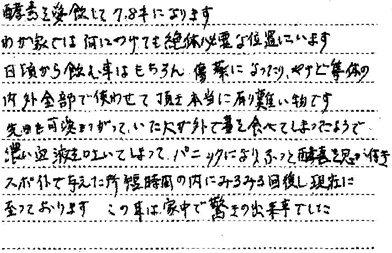 酵素を愛飲して7.8年になります
わが家では何につけても絶体必需な位置にいます
日頃から飲む事はもちろん 傷薬になったり、やけど等体の
内外全部で使わせて頂き本当に有り難い物です
先日も可愛がっていた犬が外で毒を食べてしまったようで
濃い液を吐いてしまって パニックになり、ふっと酵素を思い
スポイトで与えた所短時間の内にみるみる回復し現在に
至っております この事は家中で驚きの出来事でした